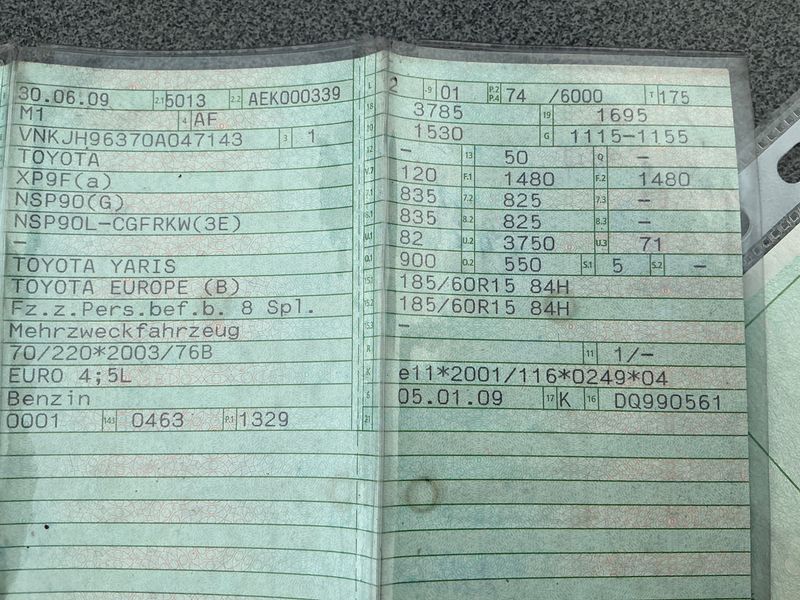 30.06.09 2.1 5013 2.2 AEK000339
M1 4 AF
VNKJH96370A047143 3 1
TOYOTA
XP9F(a)
NSP90(G)
NSP90L-CGFRKW(3E)
–
TOYOTA YARIS
TOYOTA EUROPE (B)
Fz.z.Pers.bef.b. 8 Spl.
Mehrzweckfahrzeug
70/220*2003/76B
EURO 4;5L
Benzin
0001 14.1 0463 P.1 1329
L 2 9 01 P.2 P.4 74 /6000 T 175
18 3785 19 1695
20 1530 G 1115-1155
12 – 13 50 Q –
V.7 120 F.1 1480 F.2 1480
7.1 835 7.2 825 7.3 –
8.1 835 8.2 825 8.3 –
U.1 82 U.2 3750 U.3 71
O.1 900 O.2 550 S.1 5 S.2 –
15.1 185/60R15 84H
15.2 185/60R15 84H
15.3 –
R 11 1/–
K e11*2001/116*0249*04
6 05.01.09 17 K 16 DQ990561
21